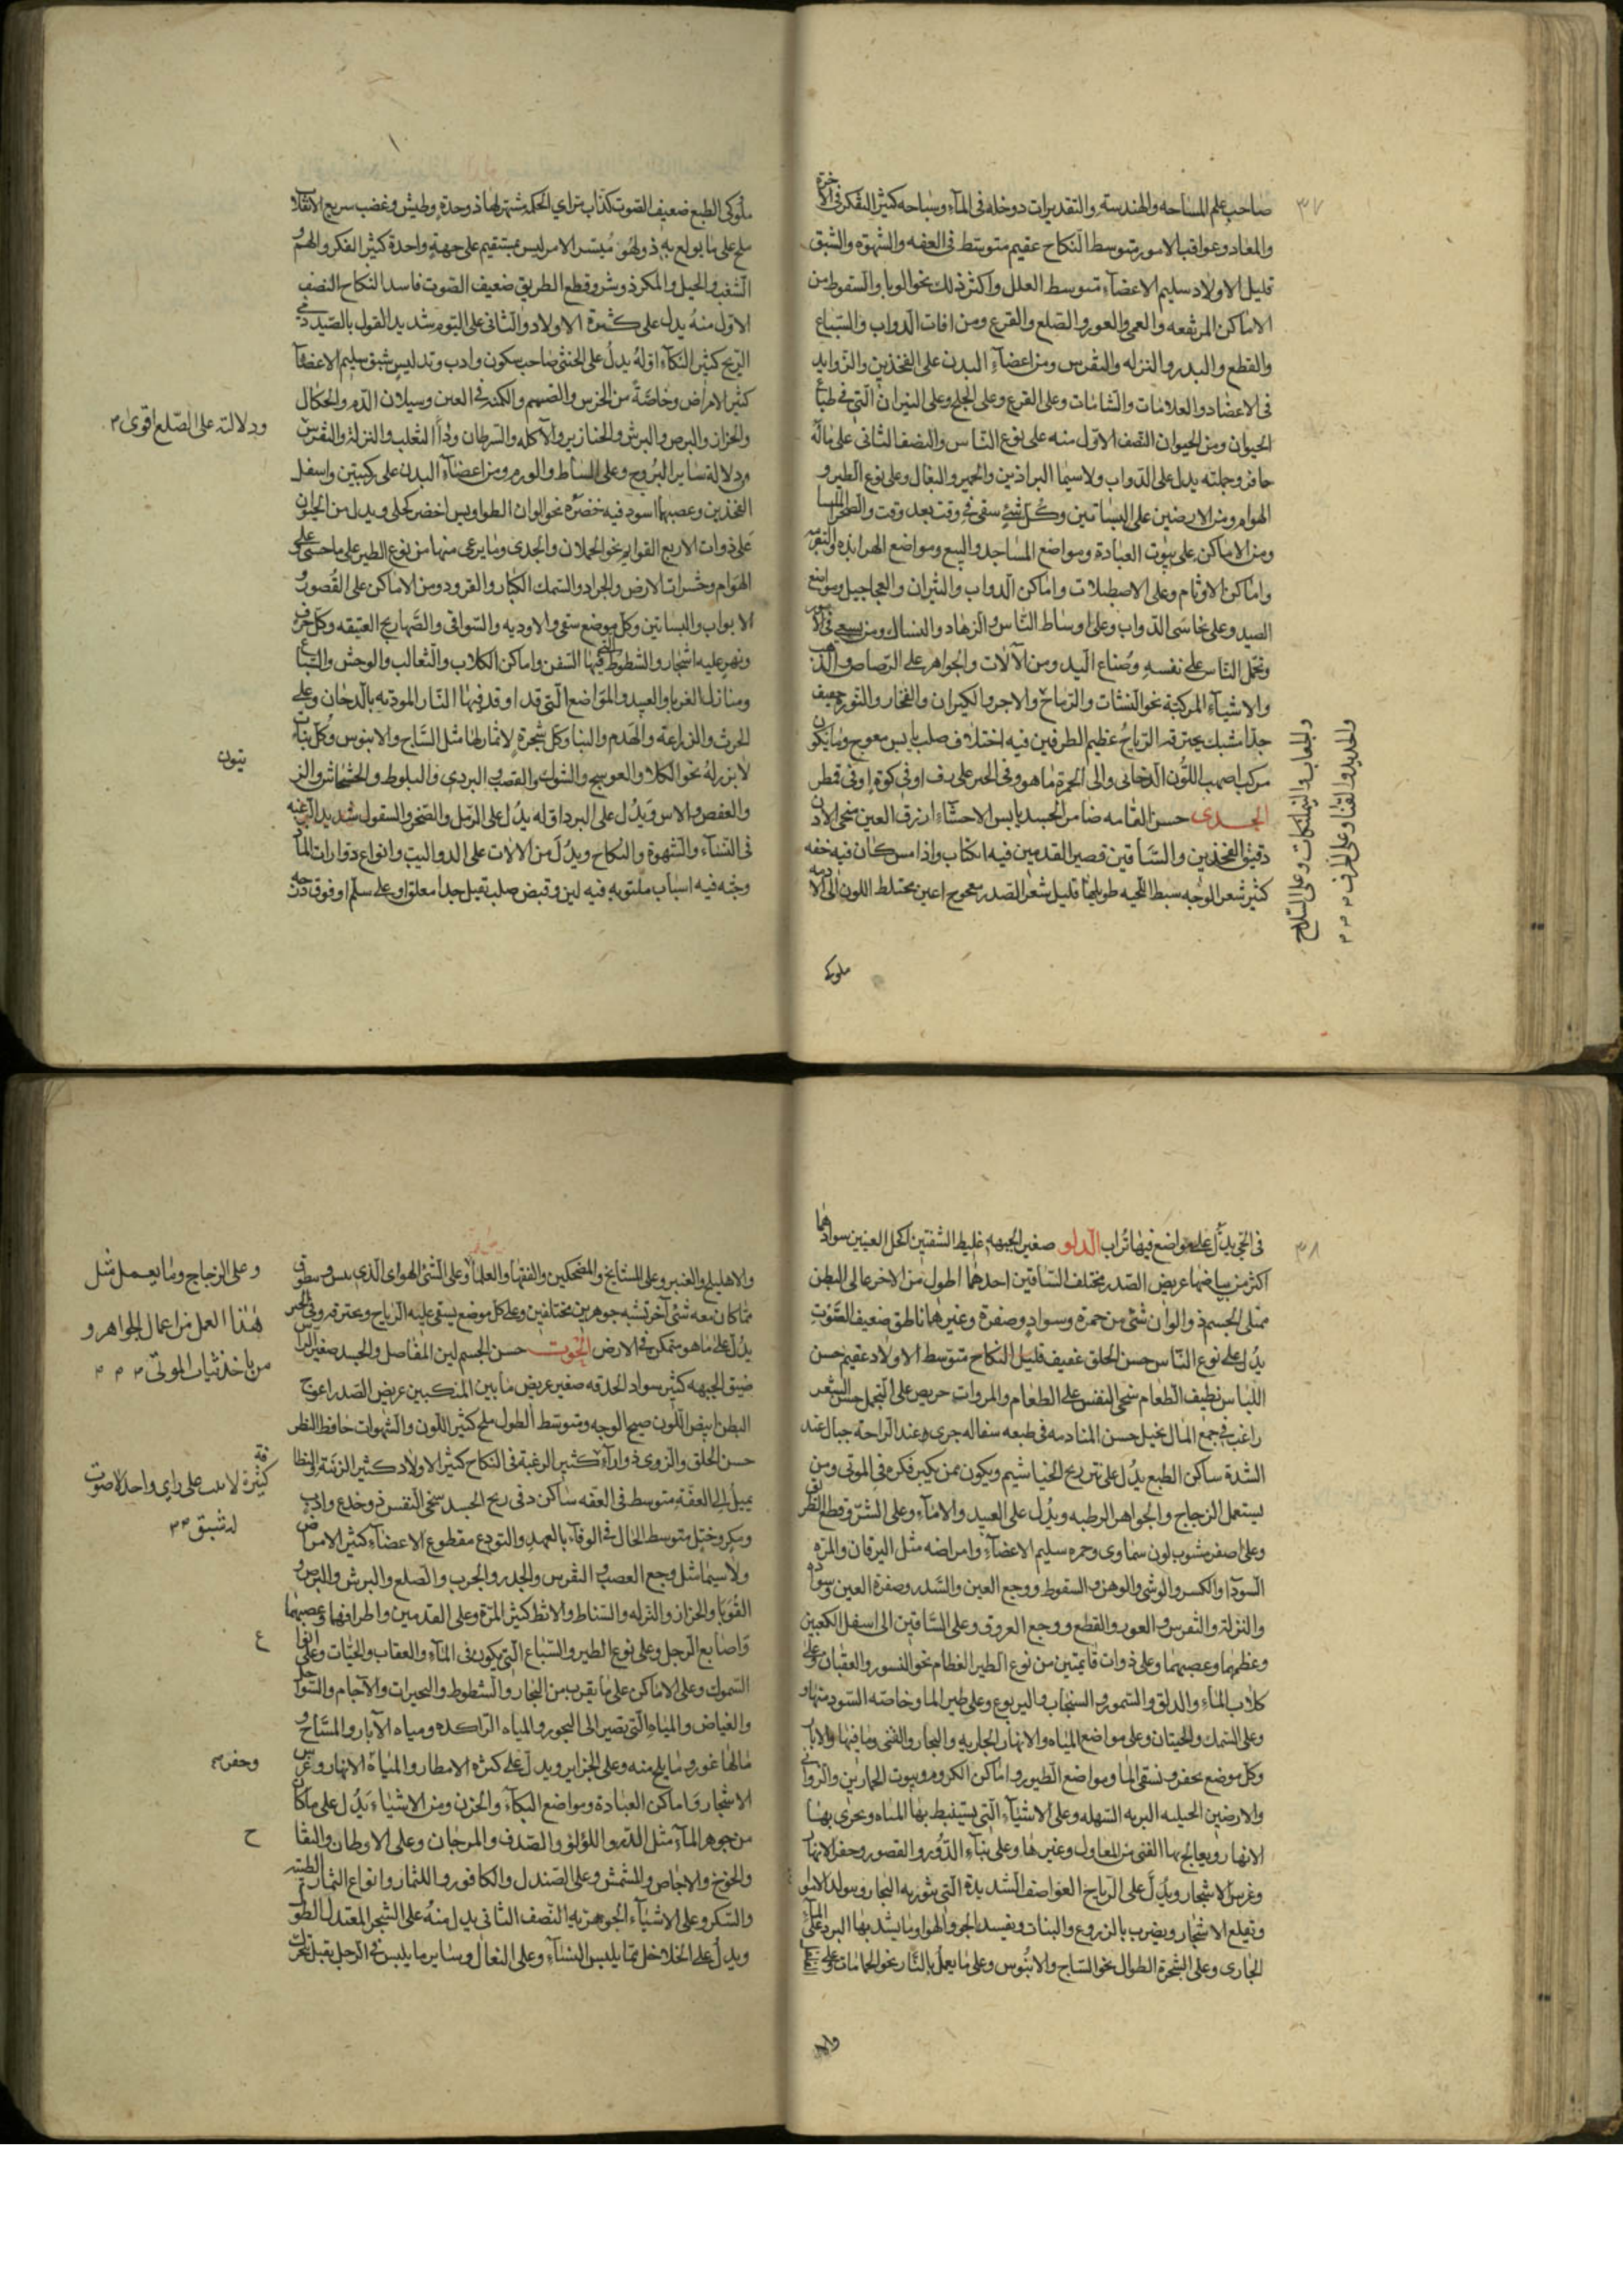 ٣٧
صاحب علم المساحه والهندسة والتقديرات دوخله فى المآء وسباحه كثير التفكر فى الآخرة
والمعاد وعواقب الامور متوسط النكاح عقيم متوسط فى العفه والشهوة والشبق
قليل الاولاد سليم الاعضآء متوسط العلل واكثر ذلك نحو الوبا والسقوط من
الاماكن المرتفعه والعمى والعور والصلع والقرع ومن افات الدواب والسباع
والقطع والبدر والنزله والنقرس ومن اعضآء البدن على الفخذين والزوايد
فى الاعضاد والعلامات والشامات وعلى القرع وعلى الجلح وعلى النيران التى فى طباع
الحيوان ومن الحيوان النصف الاول منه على نوع الناس والنصف الثانى على ماله
حافر وجملته يدل على الدواب ولاسيما البراذين والحمير والبغال وعلى نوع الطير و
الهوام ومن الارضين على البساتين وكل شئ سقى فى وقت بعد وقت
ومن الاماكن على بيوت العبادة ومواضع المساجد والبيع ومواضع الهرابذه
واماكن الاوثام وعلى الاصطبلات واماكن الدواب والثيران والعجاجيل ومواضع
الصيد وعلى نخاسى الدواب وعلى اوساط الناس والزهاد والنساك ومن يسعى فى
وتحمل الناس على نفسه وصناع اليد ومن الآلات والجواهر على الرصاص والذهب
والاشيآء المركبة نحو النشات والزجاج والاجر والكيزان والفخار والتور خفيف
جدا مشبك يخترقه الرياح عظيم الطرفين فيه اختلاف صلب يابس معوج وما يكون
مركب اصهب اللون الدخانى والى الحمرة ماهو وفى الخبر على رف او فى كوة او فى قمطر
الجدى حسن القامه ضامن الجسد يابس الاحشآء ازرق العين منحى الاذن
دقيق الفخذين والساقين قصير القدمين فيه انكباب واذا مس كان فيه خفه
كثير شعر الوجه سبط اللحيه طويلها قليل شعر الصدر اعين مختلط اللون الى الادمه
والجعاب والنيمنكات وعلى السلاح
والحديد والقنا وعلى الخزف
ملوكى
ملوكى الطبع ضعيف الصوت كذاب يترأى الحكمه مشتهر لها ذو حدة وطيش وغضب سريع الانقلاب
ملح على ما يولع به ذو لهو متيسر الامر ليس بمستقيم على جهة واحدة كثير الفكر والهم و
الشغب والحيل والمكر ذو شر وقطع الطريق ضعيف الصوت فاسد النكاح النصف
الاول منه يدل على كثرة الاولاد والثانى على التوم شديد القول بالصيد
الريح كثير البكآء اوله يدل على الخنثى صاحب سكون وادب وتدليس شبق سليم الاعضآء
كثير الامراض وخاصة من الخرس والصمم والكمنه فى العين وسيلان الدم والحكال
والحزاز والبرص والبرش والخنازير والآكله والسرطان ودآء الثعلب والنزلة والنقرس
ودلالته على الصلع اقوى
من دلالة ساير البروج وعلى السناط والورم ومن اعضآء البدن على ركبتين واسفل
الفخذين وعصبهما اسود فيه خضرة نحو الوان الطواويس اخضر كحلى ويدل من الحيوان
على ذوات الاربع القوايم نحو الحملان والجدى وما يرعى منهما من نوع الطير على ما حسى على
الهوام وحشرات الارض والجراد والسمك الكبار والقرود ومن الاماكن على القصور و
الابواب والبساتين وكل موضع سقى والاوديه والسواقى والصهاريج العتيقه وكل جرف
ونهر عليه اشجار والشطوط التى فيها السفن واماكن الكلاب والثعالب والوحش والسباع
ومنازل الغربا والعبيد والمواضع التى قد اوقد فيها النار الموذيه بالدخان وعلى
الحرث والزراعة والهدم والبنا وكل شجرة لا ثمار لها مثل الساج والابنوس وكل نبات
لا بزر له نحو الكلا والعوسج والشوك والقصب البردى والبلوط والخشخاش والز
يتون
والعفص والاس ويدل على البرد اوله يدل على الرمل والصخر والسقول شديد الرغبه
فى النسآء والشهوة والنكاح ويدل من الالات على الدواليب وانواع دوارات المآء
وجبه فيه اسباب ملتويه فيه لين وقبض صلب ثقيل جدا معلق او على سلم او فوق دكه
٣٨
فى الخبى يدل على مواضع فيها تراب الدلو صغير الجبهه غليظ الشفتين اكحل العينين سوادهما
اكثر من بياضهما عريض الصدر مختلف الساقين احدهما اطول من الاخر عالى البطن
ممتلى الجسم ذو الوان شتى من حمرة وسواد وصفرة وغيرها ناطق ضعيف الصوت
يدل على نوع الناس حسن الخلق عفيف قليل النكاح متوسط الاولاد عقيم حسن
اللباس نظيف الطعام سخى النفس على الطعام والمروات حريص على التجمل حسن الشعر
راغب فى جمع المال بخيل حسن المنادمه فى طبعه سفاله جرى عند الراحة جبال عند
الشدة ساكن الطبع يدل على ويكون ممن يكبر فكره فى الموتى ومن
يستعمل الزجاج والجواهر الرطبه ويدل على العبيد والامآء وعلى الشر وقطع الطريق
وعلى اصفر مشوب لون سماوى وحمره سليم الاعضآء وامراضه مثل اليرقان والمره
السودآ والكسر والوشى والوهن والسقوط ووجع العين والسدر وصفرة العين وسواده
والنزلة والنقرس والعور والقطع ووجع العروق وعلى الساقين الى اسفل الكعبين
وعظمهما وعصبهما وعلى ذوات قايمتين من نوع الطير العظام نحو النسور والعقبان وعلى
كلاب المآء والدلق والسمور والسنجاب واليربوع وعلى طير الما وخاصة السود منها و
وعلى السمك والحيتان وعلى مواضع المياه والانهار الجاريه والبحار والقنى وما فيها والابآر
وكل موضع يحفر ويسقى الما ومواضع الطيور واماكن الكروم وبيوت الخمارين والزوانى
والارضين الجبليه البريه السهله وعلى الاشيآء التى يستنبط بها المياه ويجرى بها
الانهار ويعالج بها القنى من المعاول وغيرها وعلى بنآء الدور والقصور وحفر الانهار
وغرس الاشجار ويدل على الرياح العواصف الشديدة التى يثور به البحار
ويقلع الاشجار ويضرب بالزروع والنبات ويفسد الجو والهوا وما يشد بها البرد على المآء
الجارى وعلى الشجرة الطوال نحو الساج والابنوس وعلى ما يعمل بالنار نحو الحمامات وعلى
والاهليلج والعنبر وعلى المشايخ والمضحكين والفقها والعلمآء وعلى الشئ الهواى الذى
مما كان معه شئ آخر تشبه جوهرين مختلفين وعلى كل موضع يسقى عليه الرياح ويخترقه وفى الخبر
يدل على ما هو متمكن فى الارض الحوت حسن الجسم لين المفاصل والجسد صغير الراس
ضيق الجبهه كثير سواد الحدقه صغير عريض ما بين المنكبين عريض الصدر اعوج
البطن ابيض اللون صبيح الوجه ومتوسط الطول ملح كثير اللون والشهوات حافظ النظر
حسن الخلق والزوى ذو ارآء كثير الرغبة فى النكاح كثير الاولاد كثير الزينة والنظافة
يميل الى العفة متوسط فى العفه ساكن دفى ريح الجسد سخى النفس ذو خدع وادب
ومكر وختل متوسط الحال فى الوفآء بالعهد والتودع مقطوع الاعضآء كثير الامراض
ولاسيما مثل وجع العصب والنقرس والجدر والجرب والصلع والبرش والبرص و
القوبا والحزاز والنزله والسناط والاثط كثير المرة وعلى القدمين واطرافهما وعصبهما
واصابع الرجل وعلى نوع الطير والسباع التى يكون فى المآء والعقاب والحيات وعلى
السموك وعلى الاماكن على ما يقرب من البحار والشطوط والبحيرات والآجام والسواحل
والغياض والمياه التى تصير الى البحور والمياه الراكده ومياه الآبار والمساح و
مالها غور وما يلج منه وعلى الجزاير ويدل على كثرة الامطار والمياه الانهار وغرس
الاشجار واماكن العبادة ومواضع البكآء والحزن ومن الاشيآء يدل على ما كان
من جوهر المآء مثل الدر واللؤلؤ والصدف والمرجان وعلى الاوطان والبقا
ع
وحفر
ح
والخوخ والاجاص والمشمش وعلى الصندل والكافور واللثمار وانواع الثمار الطيبه
والسكر وعلى الاشيآء الجوهريه النصف الثانى يدل منه على الشجر المعتدل الطول
ويدل على الخلاخل مما يلبس النسآء وعلى النعال وساير ما يلبس فى الرجل يقبل
وعلى الزجاج وما يعمل مثل
هذا العمل من اعمال الجواهر و
من ياخذ ثياب الموتى
كثيرة على راى واحد لا صوت
له شبق